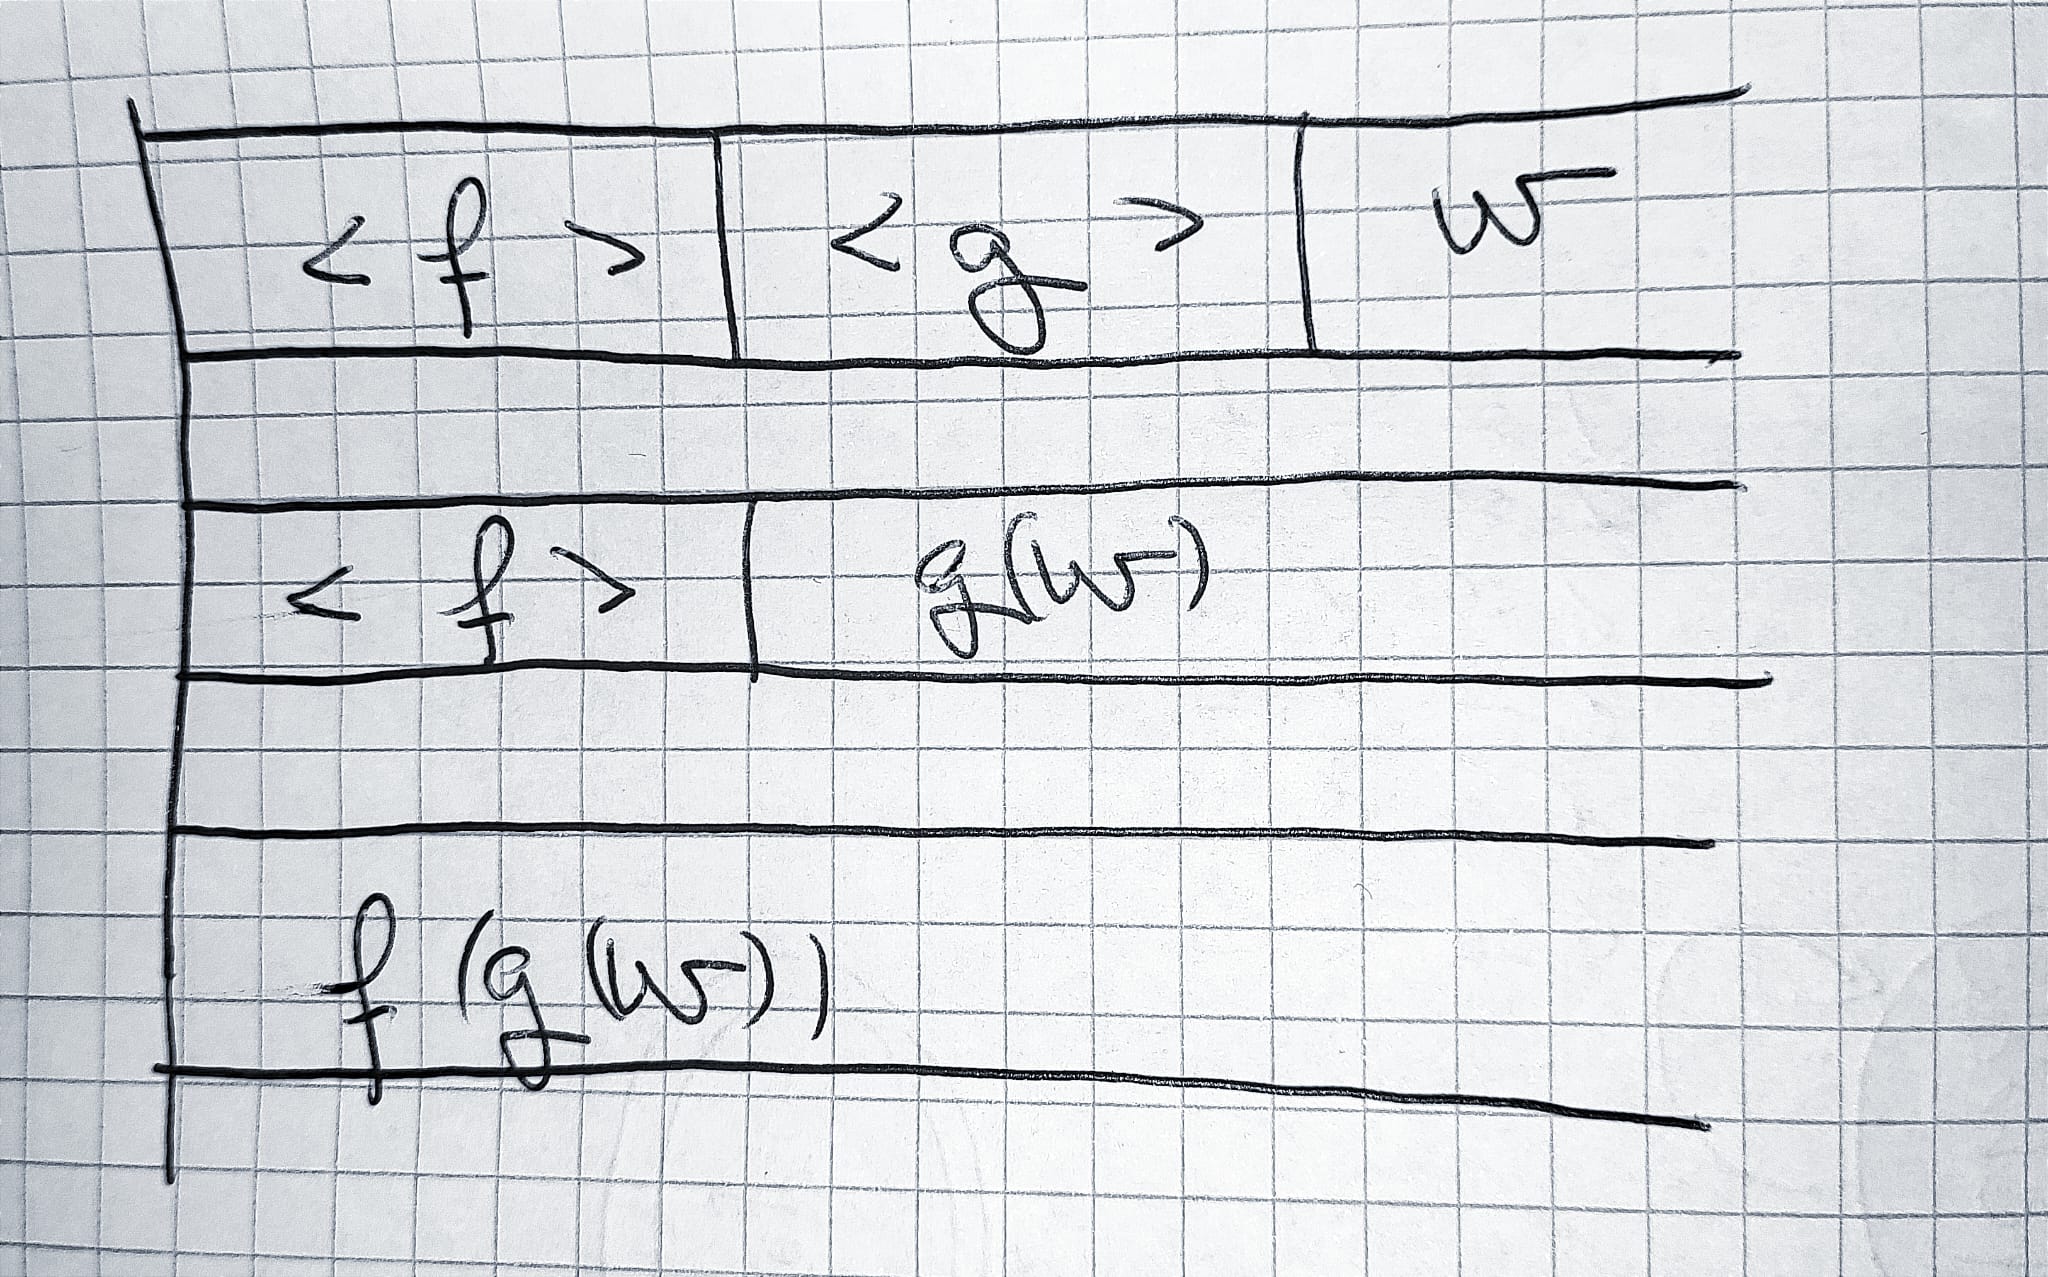 <f> <g> w
<f> g(w)
f(g(w))